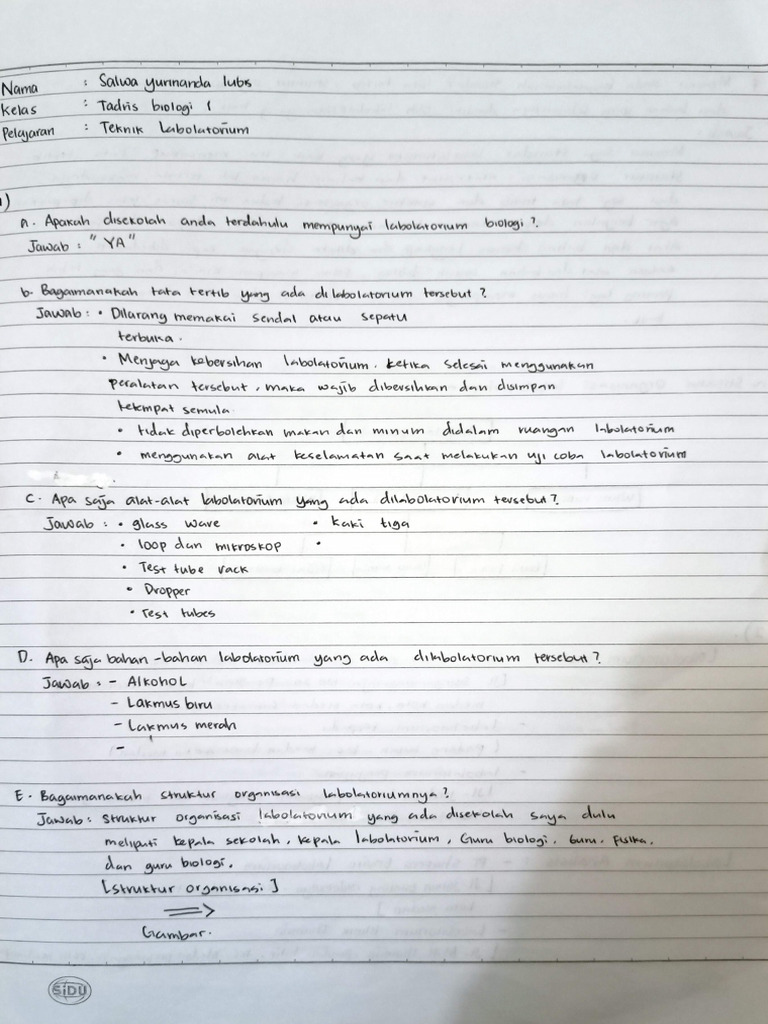 Nama : Salwa yurinanda lubis
Kelas : Tadris biologi 1
Pelajaran : Teknik Labolatorium
1)
A. Apakah disekolah anda terdahulu mempunyai labolatorium biologi?
Jawab : "YA"
b. Bagaimanakah tata tertib yang ada dilabolatorium tersebut?
Jawab : • Dilarang memakai sendal atau sepatu
terbuka.
• Menjaga kebersihan labolatorium. ketika selesai menggunakan
peralatan tersebut, maka wajib dibersihkan dan disimpan
tetempat semula.
• tidak diperbolehkan makan dan minum didalam ruangan labolatorium
• menggunakan alat keselamatan saat melakukan uji coba labolatorium
C. Apa saja alat-alat labolatorium yang ada dilabolatorium tersebut?
Jawab : • glass wave • kaki tiga
• loop dan mikroskop •
• Test tube rack
• Dropper
• Test tubes
D. Apa saja bahan-bahan labolatorium yang ada dilabolatorium tersebut?
Jawab : - Alkohol
- Lakmus biru
- Lakmus merah
-
E. Bagaimanakah struktur organisasi labolatoriumnya?
Jawab : struktur organisasi labolatorium yang ada disekolah saya dulu
meliputi kepala sekolah, kepala labolatorium, Guru biologi, Guru. Fisika,
dan guru biologi.
[struktur organisasi]
⇒
Gambar.
SiDU